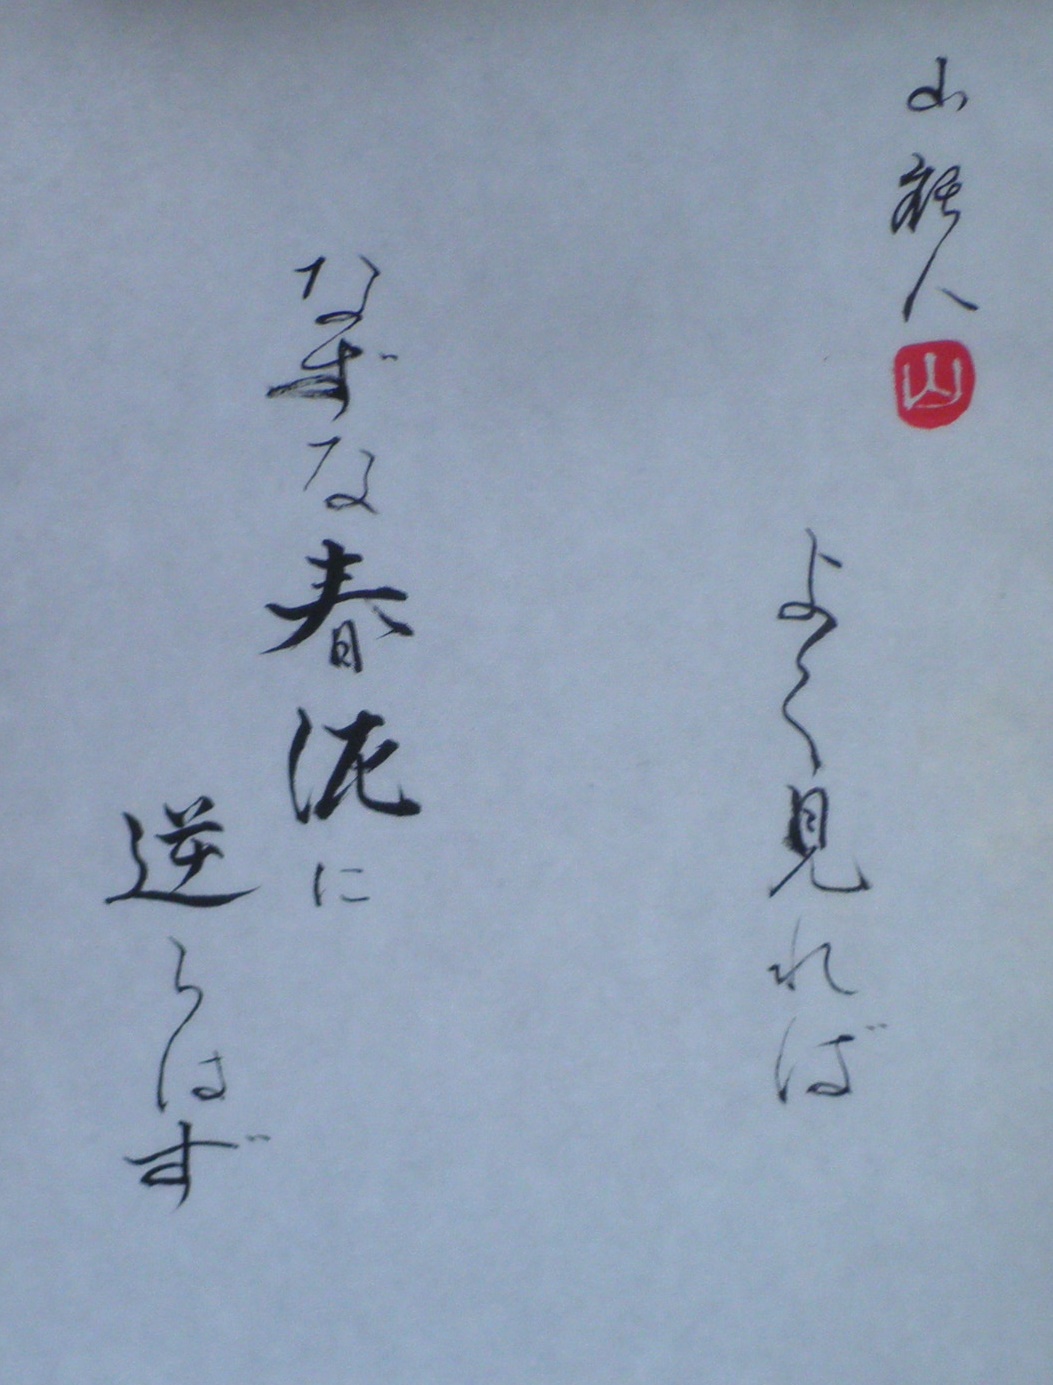 山頭人
山
よく見れば
なずな春泥に
逆らはず